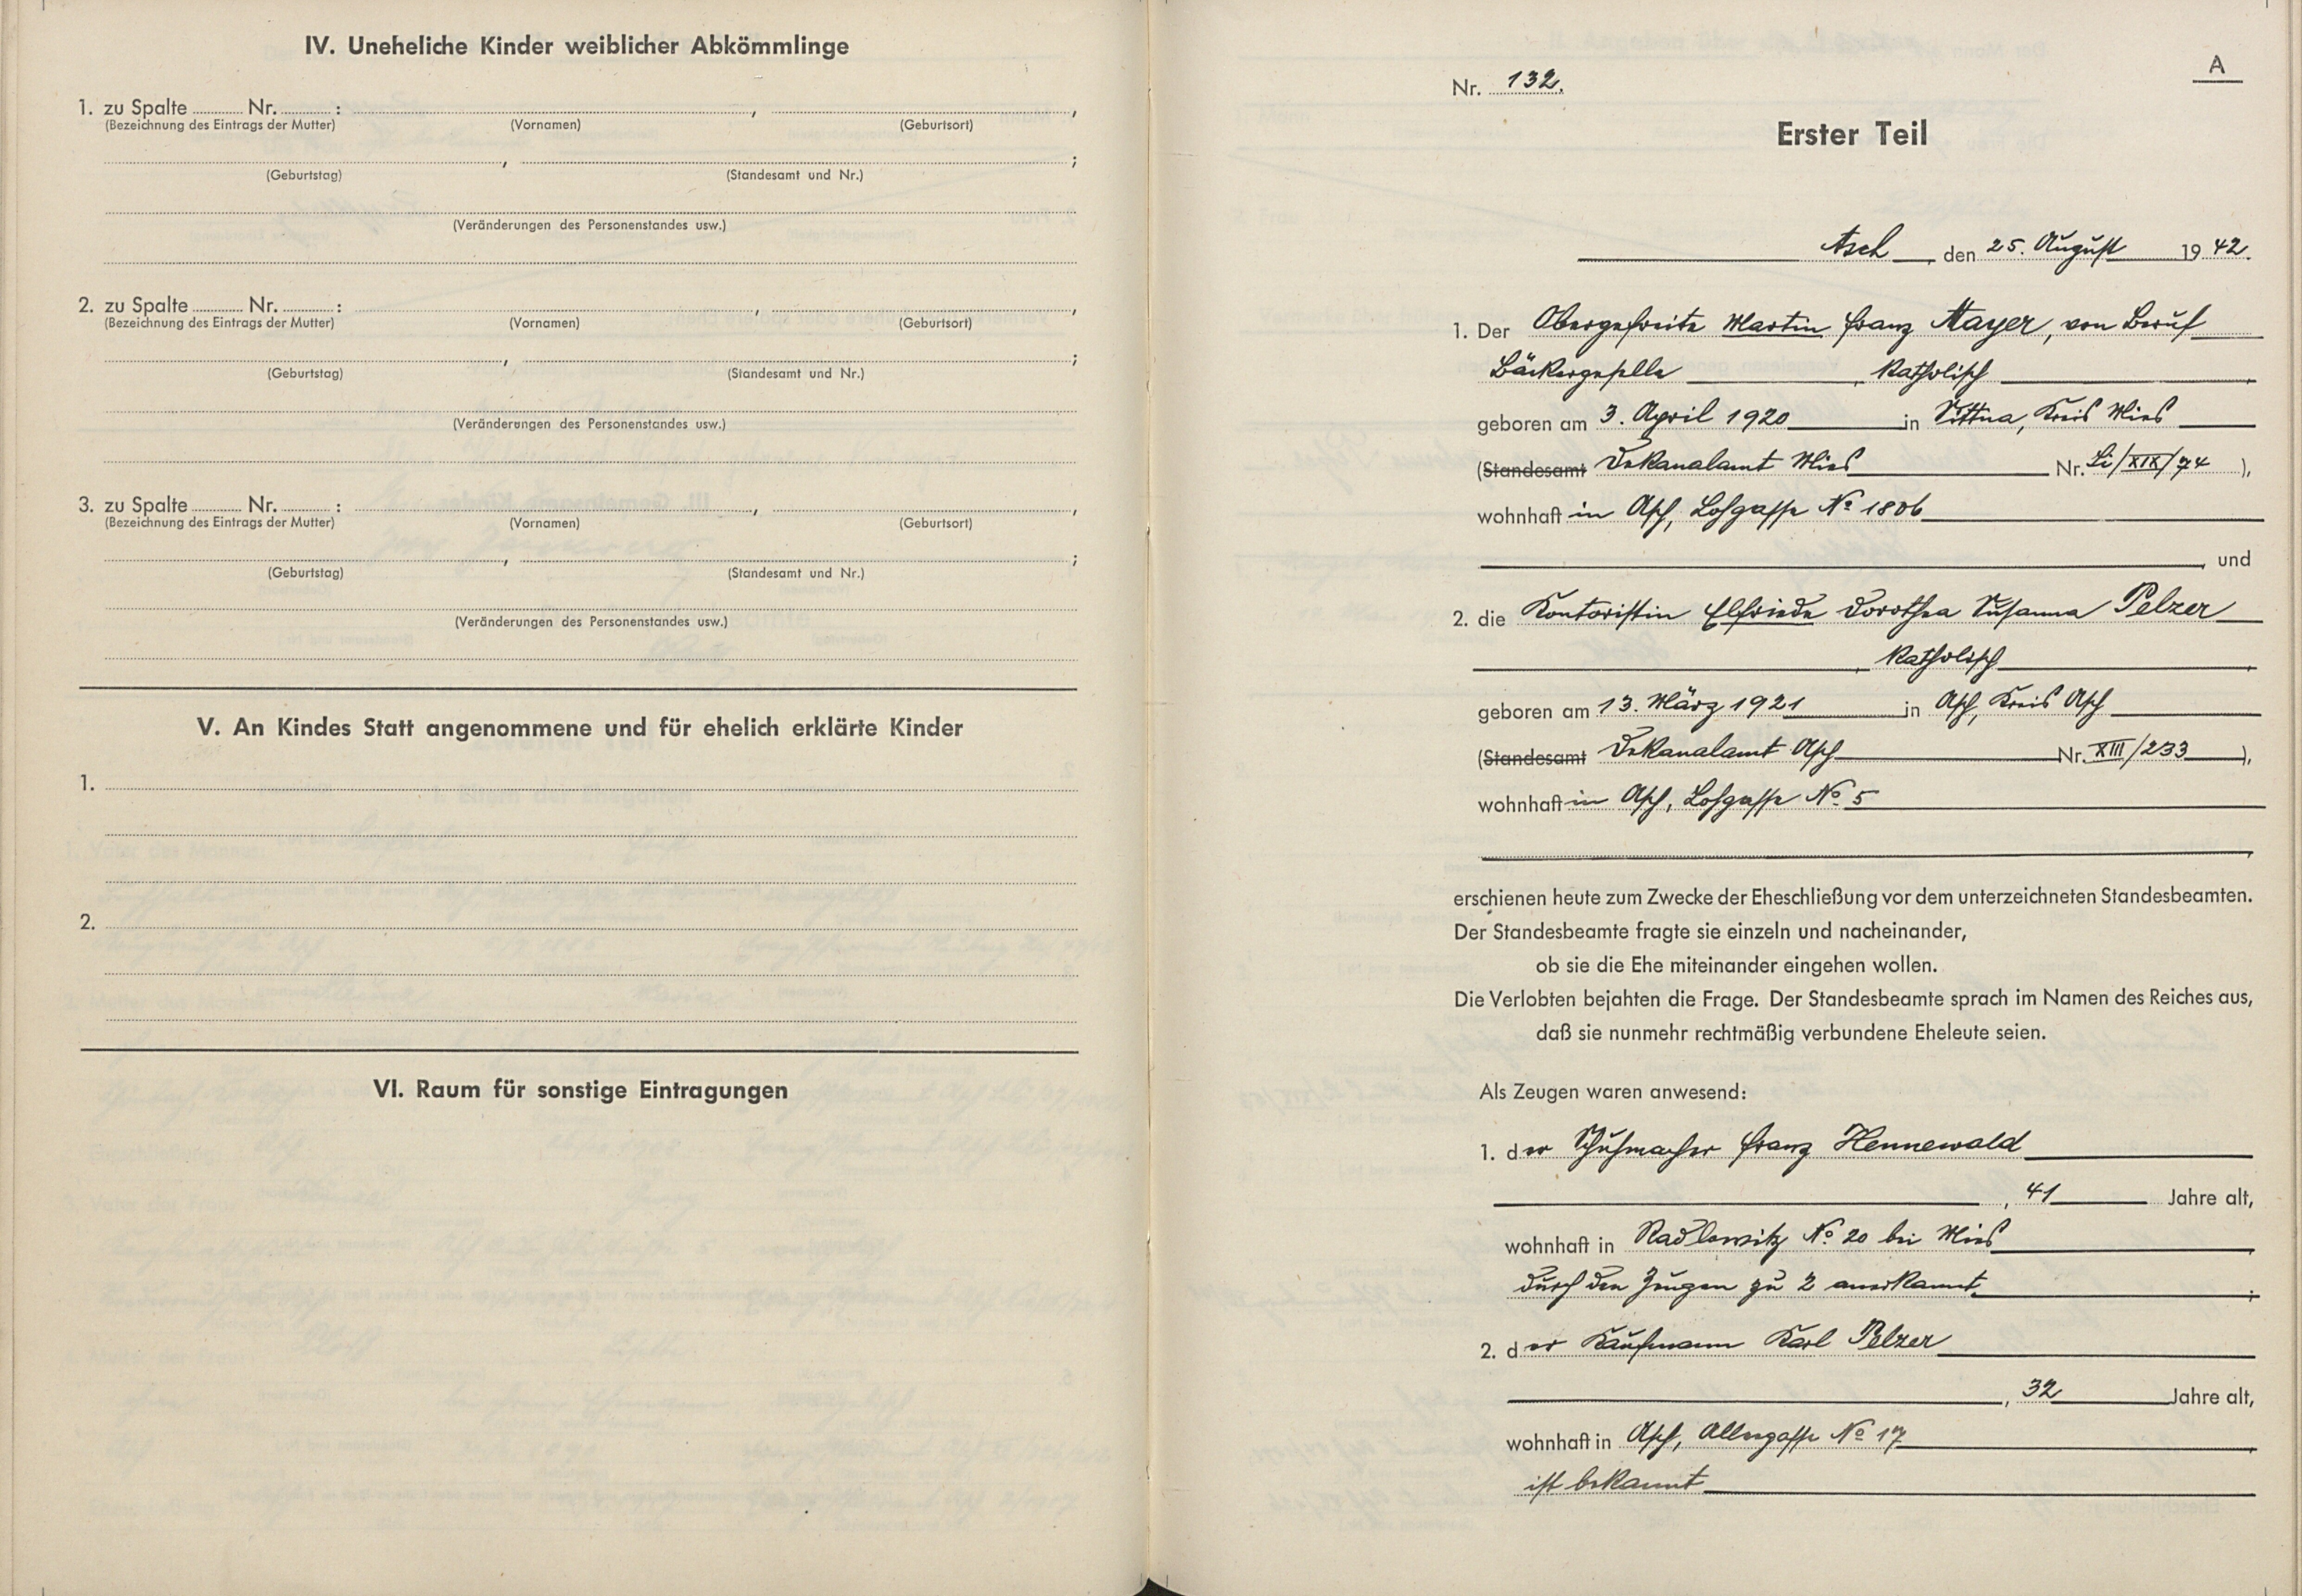 IV. Uneheliche Kinder weiblicher Abkömmlinge
1. zu Spalte ........ Nr. ........ : ........ , ........ ,
(Bezeichnung des Eintrags der Mutter) (Vornamen) (Geburtsort)
........ , ........ ;
(Geburtstag) (Standesamt und Nr.)
(Veränderungen des Personenstandes usw.)
2. zu Spalte ........ Nr. ........ : ........ , ........ ,
(Bezeichnung des Eintrags der Mutter) (Vornamen) (Geburtsort)
........ , ........ ;
(Geburtstag) (Standesamt und Nr.)
(Veränderungen des Personenstandes usw.)
3. zu Spalte ........ Nr. ........ : ........ , ........ ,
(Bezeichnung des Eintrags der Mutter) (Vornamen) (Geburtsort)
........ , ........ ;
(Geburtstag) (Standesamt und Nr.)
(Veränderungen des Personenstandes usw.)
V. An Kindes Statt angenommene und für ehelich erklärte Kinder
1.
2.
VI. Raum für sonstige Eintragungen
A
Nr. 132.
Erster Teil
Asch, den 25. August 1942.
1. Der Obergefreite Martin Franz Mayer, von Beruf
Bäckergeselle, katholisch,
geboren am 3. April 1920 in Kreis Mies
(Standesamt Dekanalamt Mies Nr. Li/XIX/74),
wohnhaft in Asch, Lohgasse No 1806
, und
2. die Kontoristin Elfriede Dorothea Susanna Pelzer
, katholisch,
geboren am 13. März 1921 in Asch, Kreis Asch
(Standesamt Dekanalamt Asch Nr. XIII/233),
wohnhaft in Asch, Lohgasse No 5
,
erschienen heute zum Zwecke der Eheschließung vor dem unterzeichneten Standesbeamten.
Der Standesbeamte fragte sie einzeln und nacheinander,
ob sie die Ehe miteinander eingehen wollen.
Die Verlobten bejahten die Frage. Der Standesbeamte sprach im Namen des Reiches aus,
daß sie nunmehr rechtmäßig verbundene Eheleute seien.
Als Zeugen waren anwesend:
1. der Schuhmacher Franz Hennewald
, 41 Jahre alt,
wohnhaft in Radlowitz No 20 bei Mies,
durch den Zeugen zu 2 anerkannt.;
2. der Kaufmann Karl Pelzer
, 32 Jahre alt,
wohnhaft in Asch, No 17,
ist bekannt